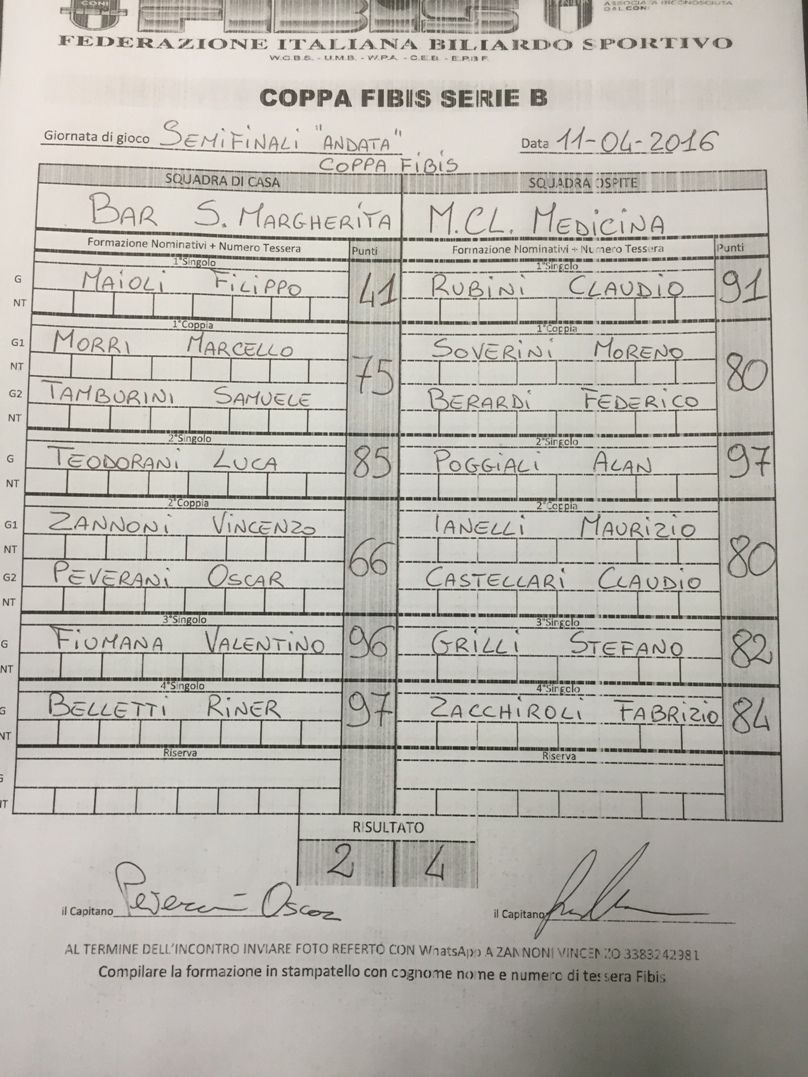 CONI
FIBIS
ASSOCIATA RICONOSCIUTA
DAL CONI
FEDERAZIONE ITALIANA BILIARDO SPORTIVO
W.C.B.S. - U.M.B. - W.P.A. - C.E.B. - E.P.B.F.
COPPA FIBIS SERIE B
Giornata di gioco SEMIFINALI "ANDATA" Data 11-04-2016
COPPA FIBIS
SQUADRA DI CASA SQUADRA OSPITE
BAR S. MARGHERITA M.CL. MEDICINA
Formazione Nominativi + Numero Tessera Punti Formazione Nominativi + Numero Tessera Punti
1°Singolo 1°Singolo
G MAIOLI FILIPPO 41 RUBINI CLAUDIO 91
NT
1°Coppia 1°Coppia
G1 MORRI MARCELLO SOVERINI MORENO
NT 75 80
G2 TAMBURINI SAMUELE BERARDI FEDERICO
NT
2°Singolo 2°Singolo
G TEODORANI LUCA 85 POGGIALI ALAN 97
NT
2°Coppia 2°Coppia
G1 ZANNONI VINCENZO IANELLI MAURIZIO
NT 66 80
G2 PEVERANI OSCAR CASTELLARI CLAUDIO
NT
3°Singolo 3°Singolo
G FIUMANA VALENTINO 96 GRILLI STEFANO 82
NT
4°Singolo 4°Singolo
G BELLETTI RINER 97 ZACCHIROLI FABRIZIO 84
NT
Riserva Riserva
G
NT
RISULTATO
2 4
il Capitano Peverani Oscar il Capitano
AL TERMINE DELL'INCONTRO INVIARE FOTO REFERTO CON WhatsApp A ZANNONI VINCENZO 3383242981
Compilare la formazione in stampatello con cognome nome e numero di tessera Fibis